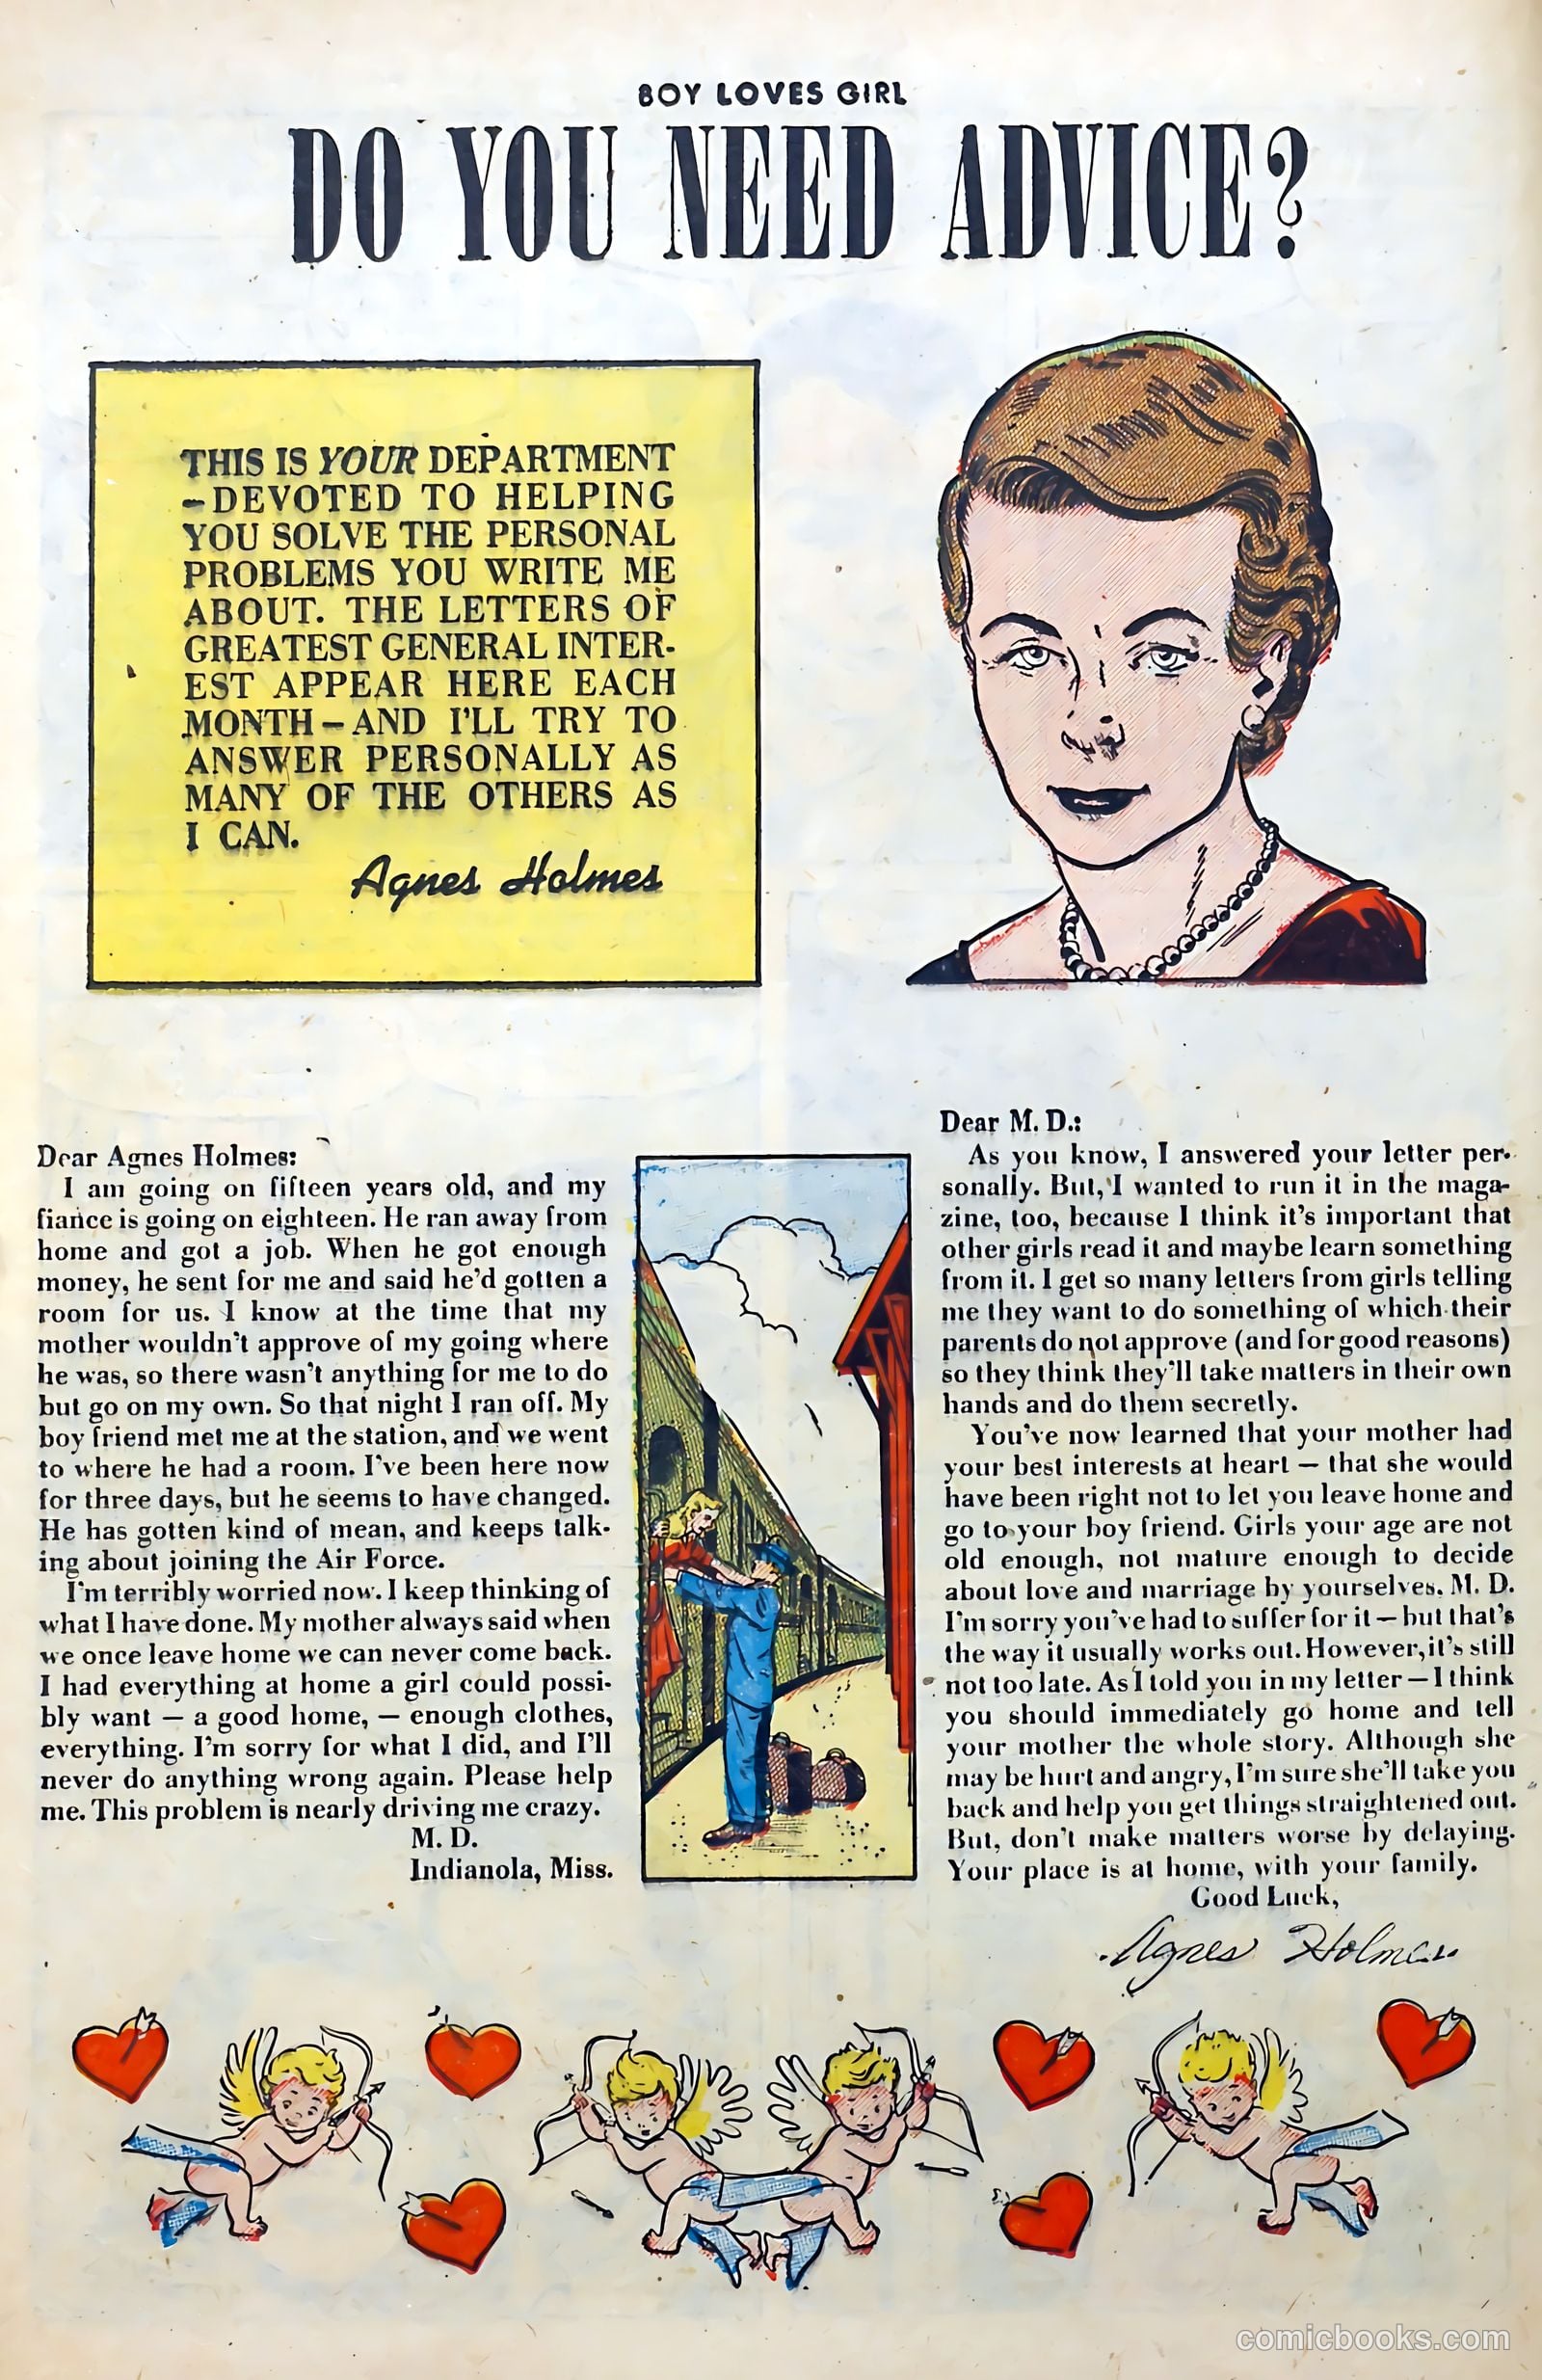 BOY LOVES GIRL
DO YOU NEED ADVICE?
THIS IS YOUR DEPARTMENT
—DEVOTED TO HELPING
YOU SOLVE THE PERSONAL
PROBLEMS YOU WRITE ME
ABOUT. THE LETTERS OF
GREATEST GENERAL INTER-
EST APPEAR HERE EACH
MONTH—AND I'LL TRY TO
ANSWER PERSONALLY AS
MANY OF THE OTHERS AS
I CAN.
Agnes Holmes
Dear Agnes Holmes:
I am going on fifteen years old, and my
fiance is going on eighteen. He ran away from
home and got a job. When he got enough
money, he sent for me and said he'd gotten a
room for us. I know at the time that my
mother wouldn't approve of my going where
he was, so there wasn't anything for me to do
but go on my own. So that night I ran off. My
boy friend met me at the station, and we went
to where he had a room. I've been here now
for three days, but he seems to have changed.
He has gotten kind of mean, and keeps talk-
ing about joining the Air Force.
I'm terribly worried now. I keep thinking of
what I have done. My mother always said when
we once leave home we can never come back.
I had everything at home a girl could possi-
bly want — a good home, — enough clothes,
everything. I'm sorry for what I did, and I'll
never do anything wrong again. Please help
me. This problem is nearly driving me crazy.
M. D.
Indianola, Miss.
Dear M. D.:
As you know, I answered your letter per-
sonally. But, I wanted to run it in the maga-
zine, too, because I think it's important that
other girls read it and maybe learn something
from it. I get so many letters from girls telling
me they want to do something of which their
parents do not approve (and for good reasons)
so they think they'll take matters in their own
hands and do them secretly.
You've now learned that your mother had
your best interests at heart — that she would
have been right not to let you leave home and
go to your boy friend. Girls your age are not
old enough, not mature enough to decide
about love and marriage by yourselves. M. D.
I'm sorry you've had to suffer for it — but that's
the way it usually works out. However, it's still
not too late. As I told you in my letter — I think
you should immediately go home and tell
your mother the whole story. Although she
may be hurt and angry, I'm sure she'll take you
back and help you get things straightened out.
But, don't make matters worse by delaying.
Your place is at home, with your family.
Good Luck,
Agnes Holmes
comicbooks.com